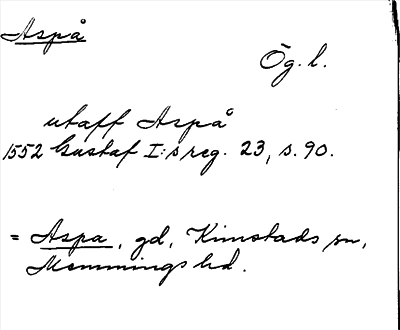 Aspå
Ög. l.
utaff Aspå
1552 Gustaf I:s reg. 23, s. 90.
= Aspa, gd, Kimstads sn,
Memmings hd.